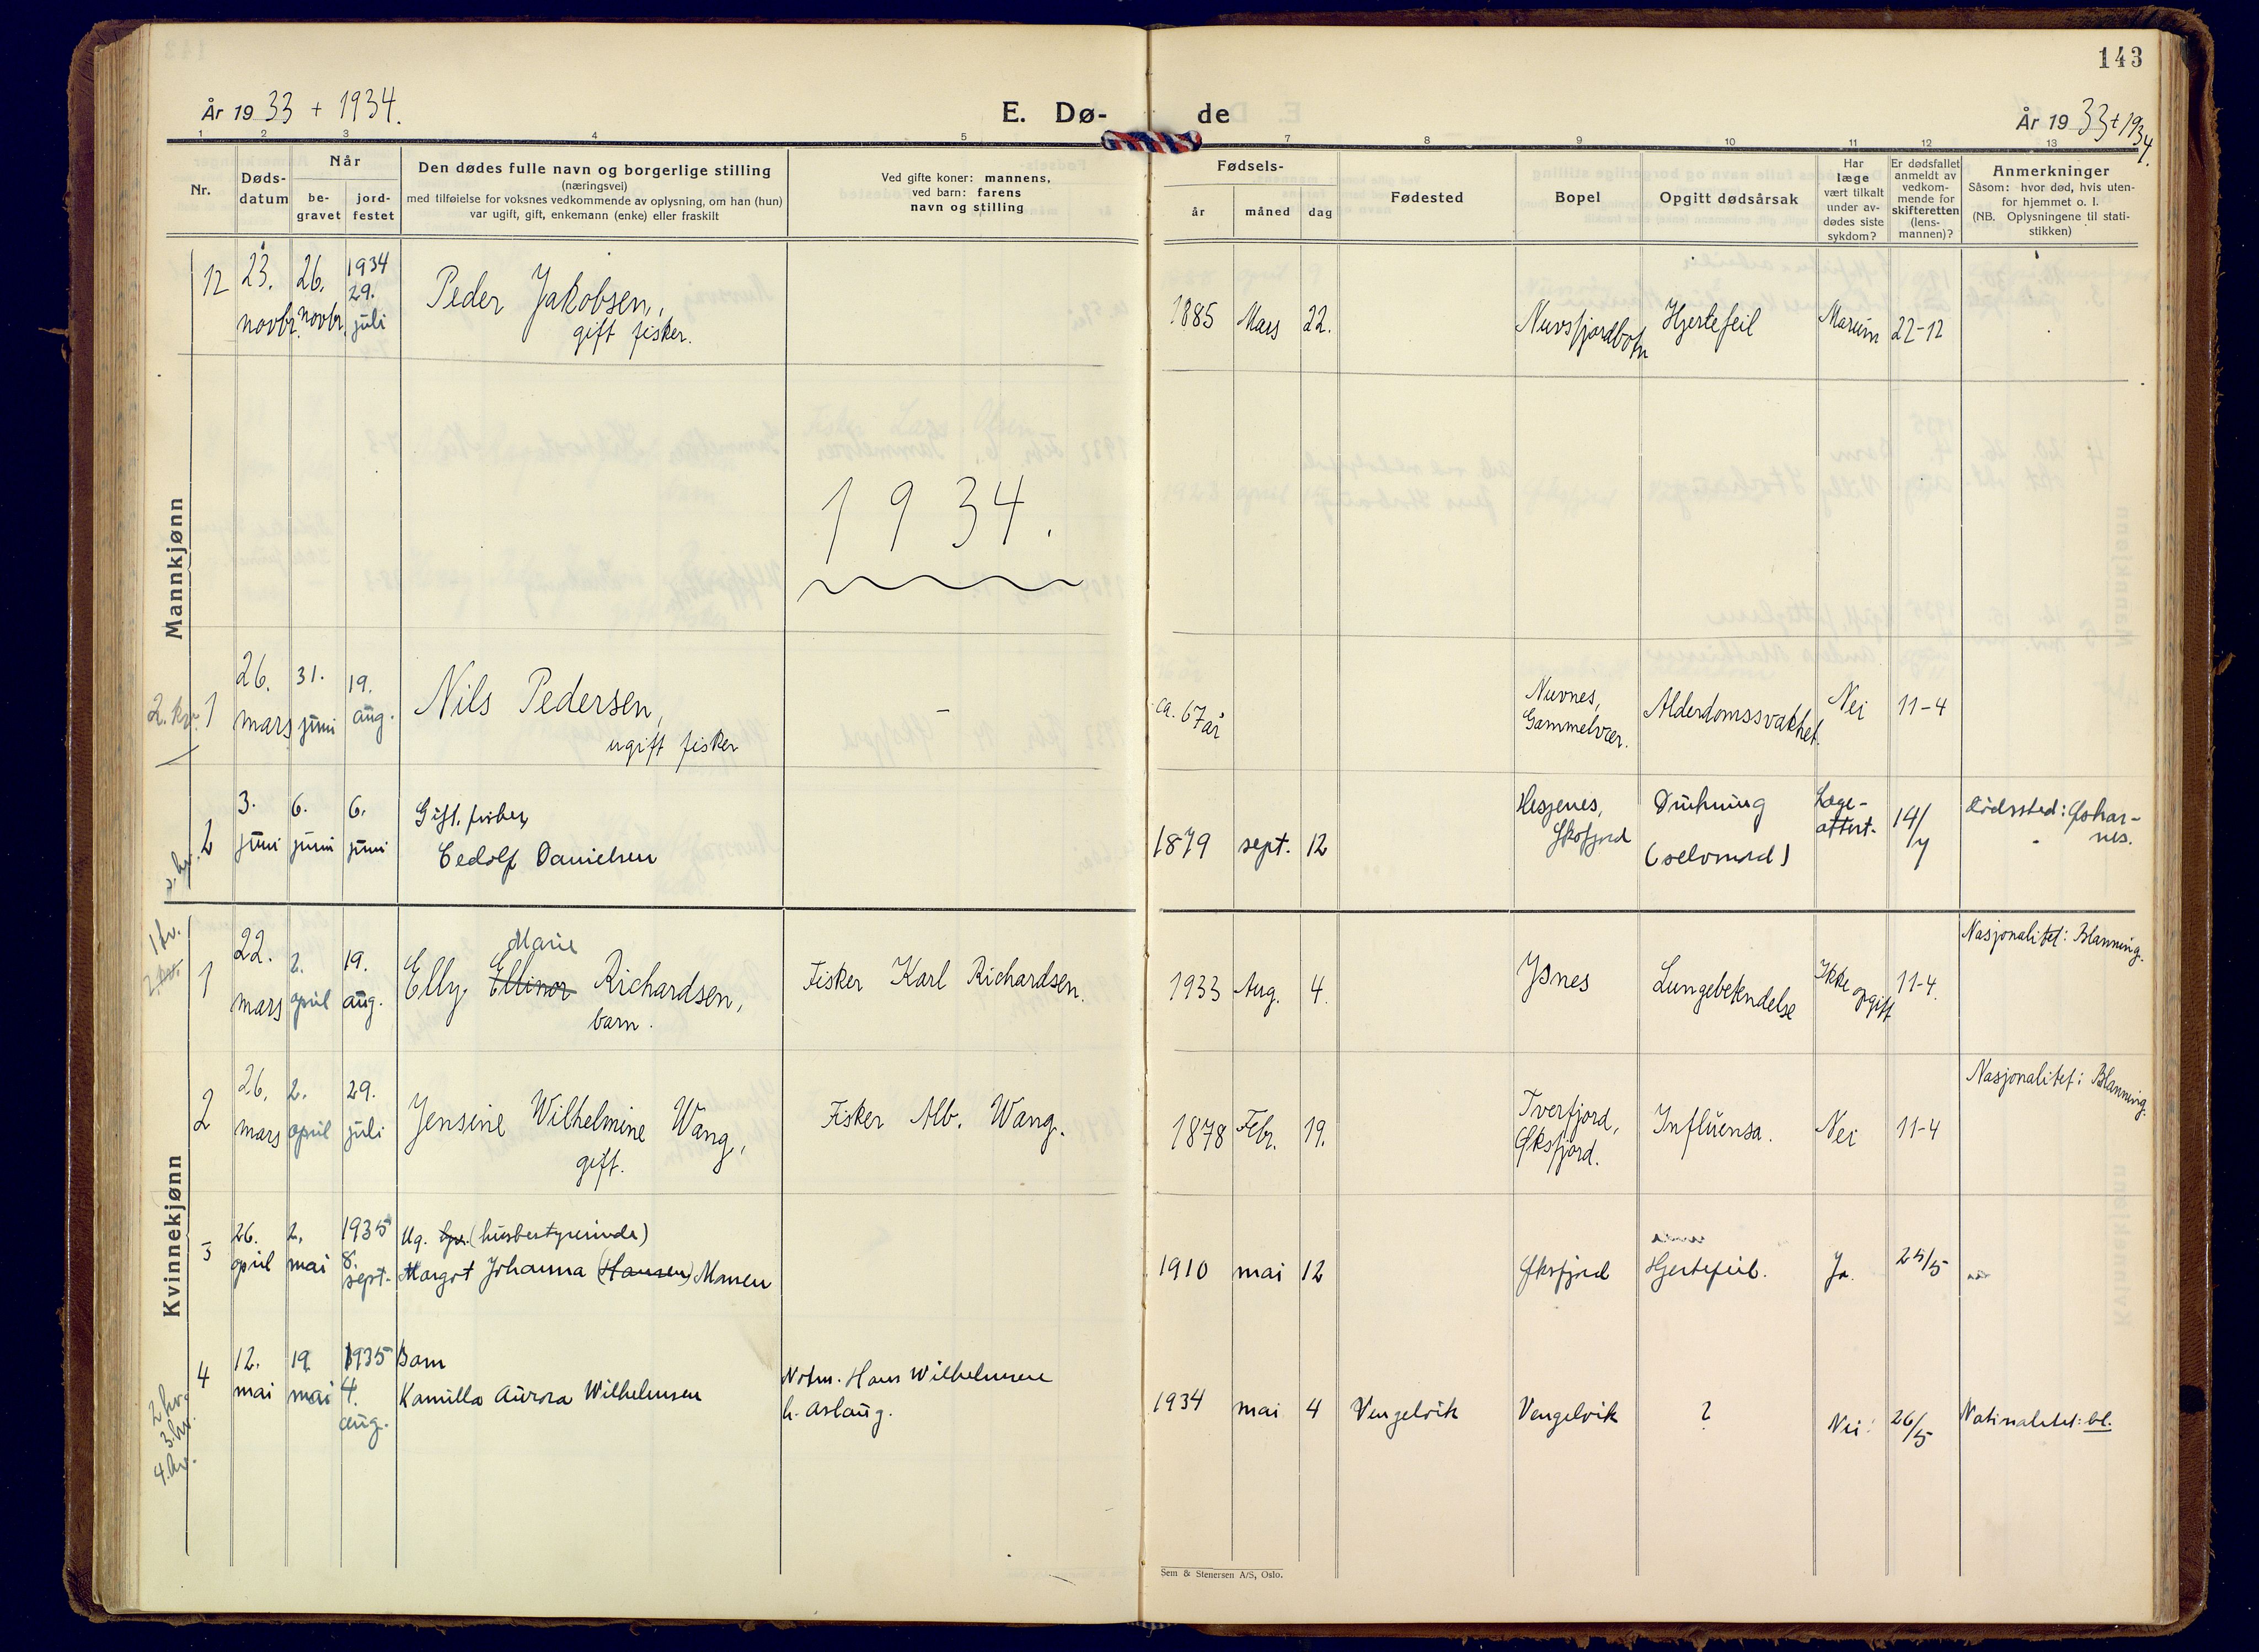 143
År 1933 + 1934.
E. Dø- de
År 1933+1934.
1 2 3 4 5 7 8 9 10 11 12 13
Nr.
Døds-
datum
Når
be-
gravet
jord-
festet
Den dødes fulle navn og borgerlige stilling
(næringsvei)
med tilføielse for voksnes vedkommende av oplysning, om han (hun)
var ugift, gift, enkemann (enke) eller fraskilt
Ved gifte koner: mannens,
ved barn: farens
navn og stilling
Fødsels-
år måned dag
Fødested
Bopel
Opgitt dødsårsak
Har
læge
vært tilkalt
under av-
dødes siste
sykdom?
Er dødsfallet
anmeldt av
vedkom-
mende for
skifteretten
(lens-
mannen)?
Anmerkninger
Såsom: hvor død, hvis uten-
for hjemmet o. l.
(NB. Oplysningene til stati-
stikken)
Mannkjønn
12 23. novbr. 26. novbr. 1934 29. juli
Peder Jakobsen,
gift fisker.
1885 Mars 22. Nuvsfjordbotn Hjertefeil Marum 22-12
1934.
2. kv. 1 26. mars 31. juni 19. aug.
Nils Pedersen,
ugift fisker
-
ca. 67 år
Nuvnes,
Gammelvær.
Alderdomssvakhet. Nei 11-4
2 3. juni 6. juni 6. juni
Gift. fisker
Cedolf Danielsen
1879 sept. 12
Hesjenes,
Øksfjord
Drukning
(selvmord)
Læge-
attest.
14/7
Dødssted:
nes.
Kvinnekjønn
1 kv.
2. kv.
1 22. mars 2. april 19. aug.
Marie
Elly Ellinor Richardsen,
barn.
Fisker Karl Richardsen.
1933 Aug. 4. Isnes Lungebetendelse Ikke opgitt 11-4.
Nasjonalitet: Blanning.
2 26. mars 2. april 29. juli
Jensine Wilhelmine Wang,
gift.
Fisker Alb. Wang.
1878 Febr. 19.
Tverfjord,
Øksfjord.
Influensa. Nei 11-4
Nasjonalitet: Blanning.
3 26. april 2. mai 1935 8. sept.
Ug. (husbestyrerinde)
Margot Johanna (Hansen) Monsen
1910 mai 12 Øksfjord Hjertefeil. Ja. 25/5
4 12. mai 19 mai 1935 4. aug.
Barn
Kamilla Aurora Wilhelmsen
Hans Wilhelmsen
h. Aslaug.
1934 mai 4 Vengelvik Vengelvik ? Nei 26/5
Nationalitet: bl.
2 kv.
3. kv.
4. kv.
Sem & Stenersen A/S, Oslo.